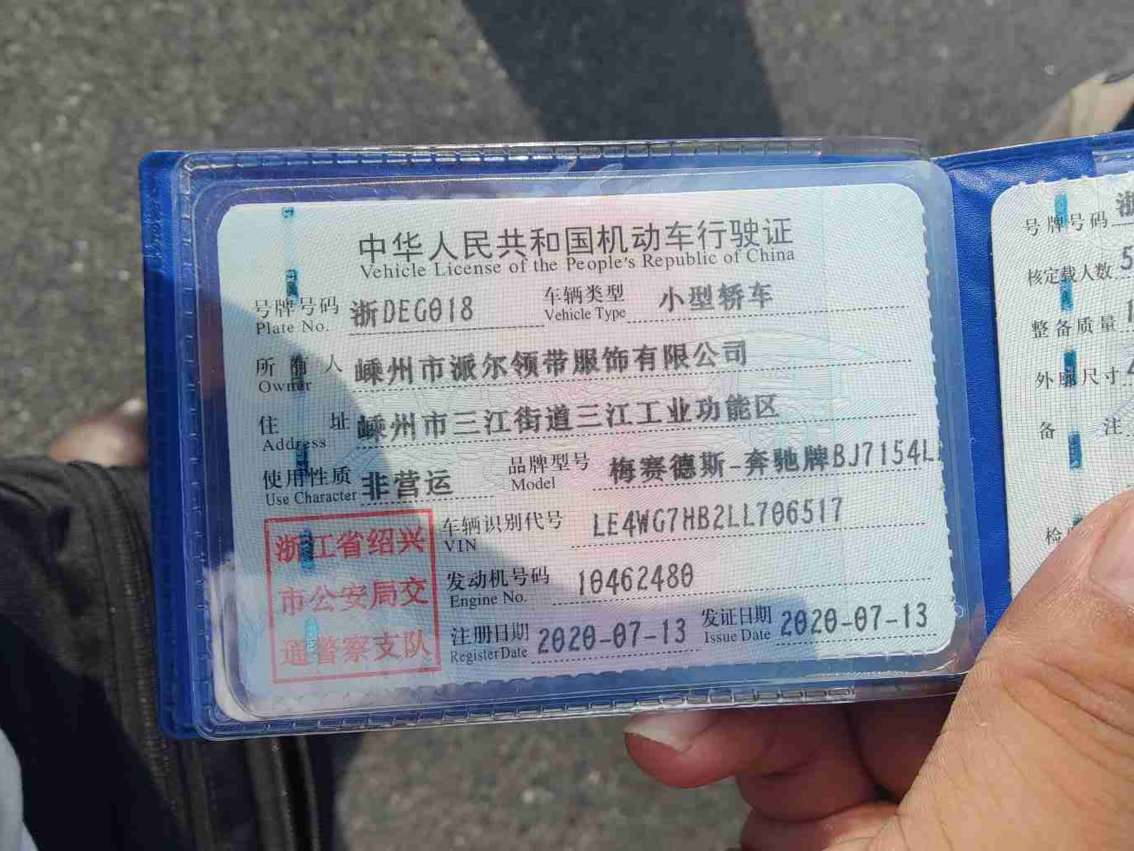 中华人民共和国机动车行驶证
Vehicle License of the People's Republic of China
号牌号码 浙DEG018 车辆类型 小型轿车
Plate No. Vehicle Type
所有人 嵊州市派尔领带服饰有限公司
Owner
住址 嵊州市三江街道三江工业功能区
Address
使用性质 非营运 品牌型号 梅赛德斯-奔驰牌BJ7154L
Use Character Model
浙江省绍兴
市公安局交
通警察支队
车辆识别代号 LE4WG7HB2LL706517
VIN
发动机号码 10462480
Engine No.
注册日期 2020-07-13 发证日期 2020-07-13
Register Date Issue Date
号牌号码 浙
核定载人数 5
整备质量 1
外廓尺寸 4
备注
检